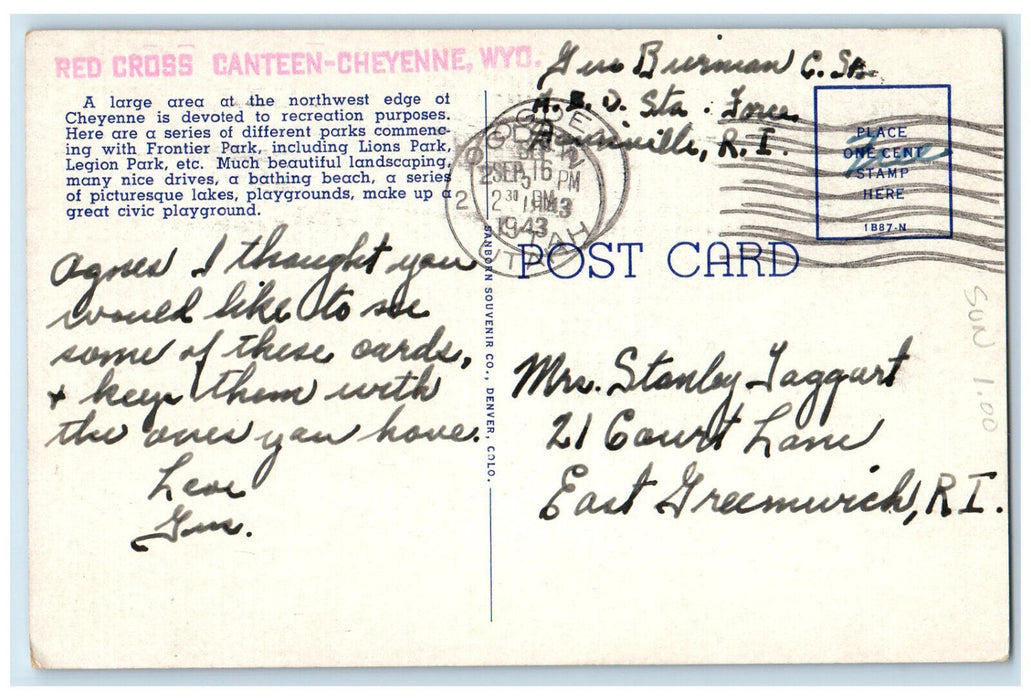 RED CROSS CANTEEN-CHEYENNE, WYO.
A large area at the northwest edge of
Cheyenne is devoted to recreation purposes.
Here are a series of different parks commenc-
ing with Frontier Park, including Lions Park,
Legion Park, etc. Much beautiful landscaping,
many nice drives, a bathing beach, a series
of picturesque lakes, playgrounds, make up a
great civic playground.
Agnes I thought you
would like to see
some of these cards,
+ keep them with
the ones you have.
Love
Gus.
SANBORN SOUVENIR CO., DENVER, COLO.
Gus Bierman
Sta. Force
R. I.
OGDEN
SEP 16
2 30 PM
1943
UTAH
PLACE
ONE CENT
STAMP
HERE
1B87-N
Free
POST CARD
Mrs. Stanley Taggart
21 Court Lane
East Greenwich, R. I.
SUN 1.00